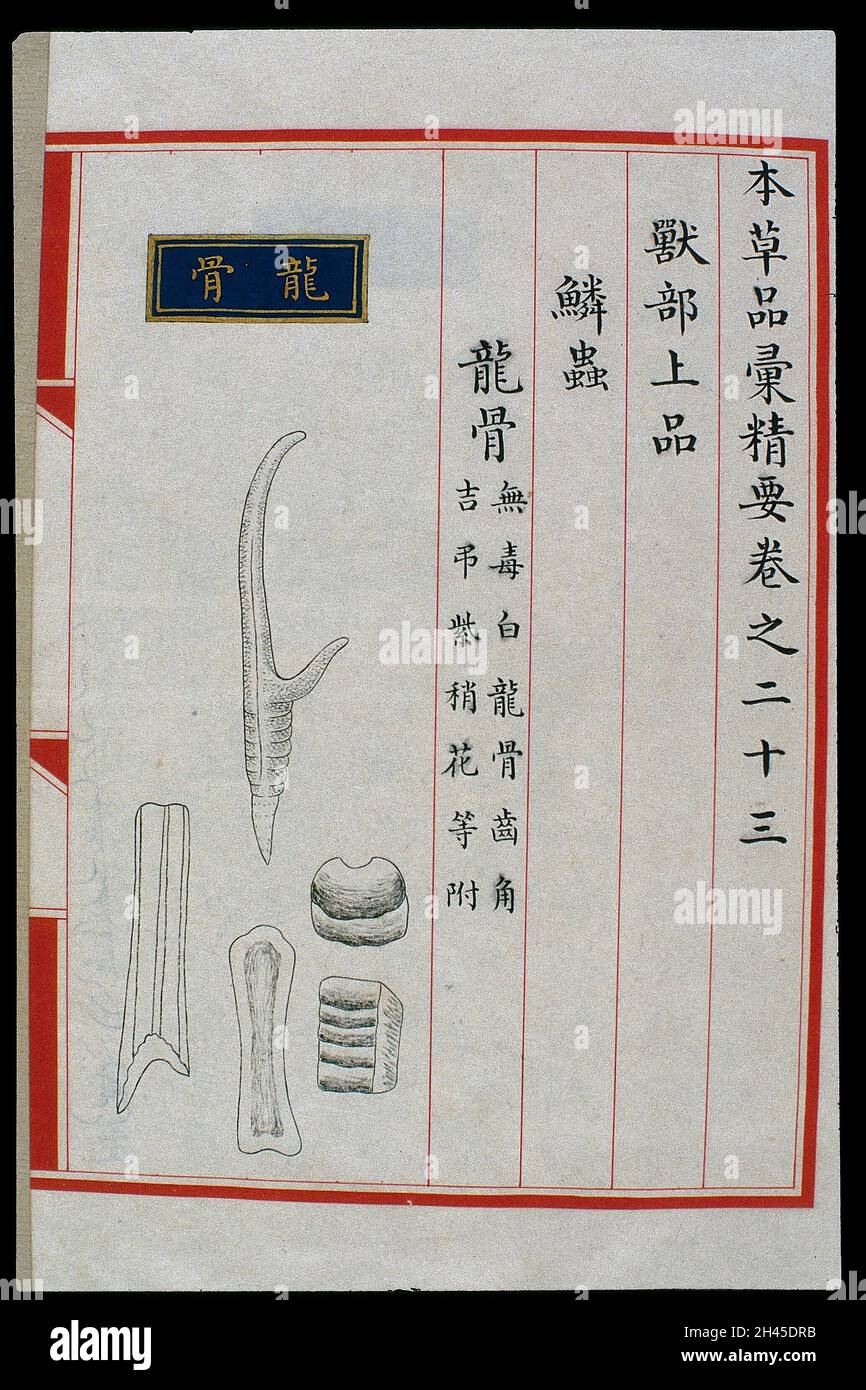 本草品彙精要卷之二十三
獸部上品
鱗蟲
龍骨
無毒白龍骨齒角
吉弔紫稍花等附
龍骨
alamy
alamy
Image ID: 2H45DRB
www.alamy.com